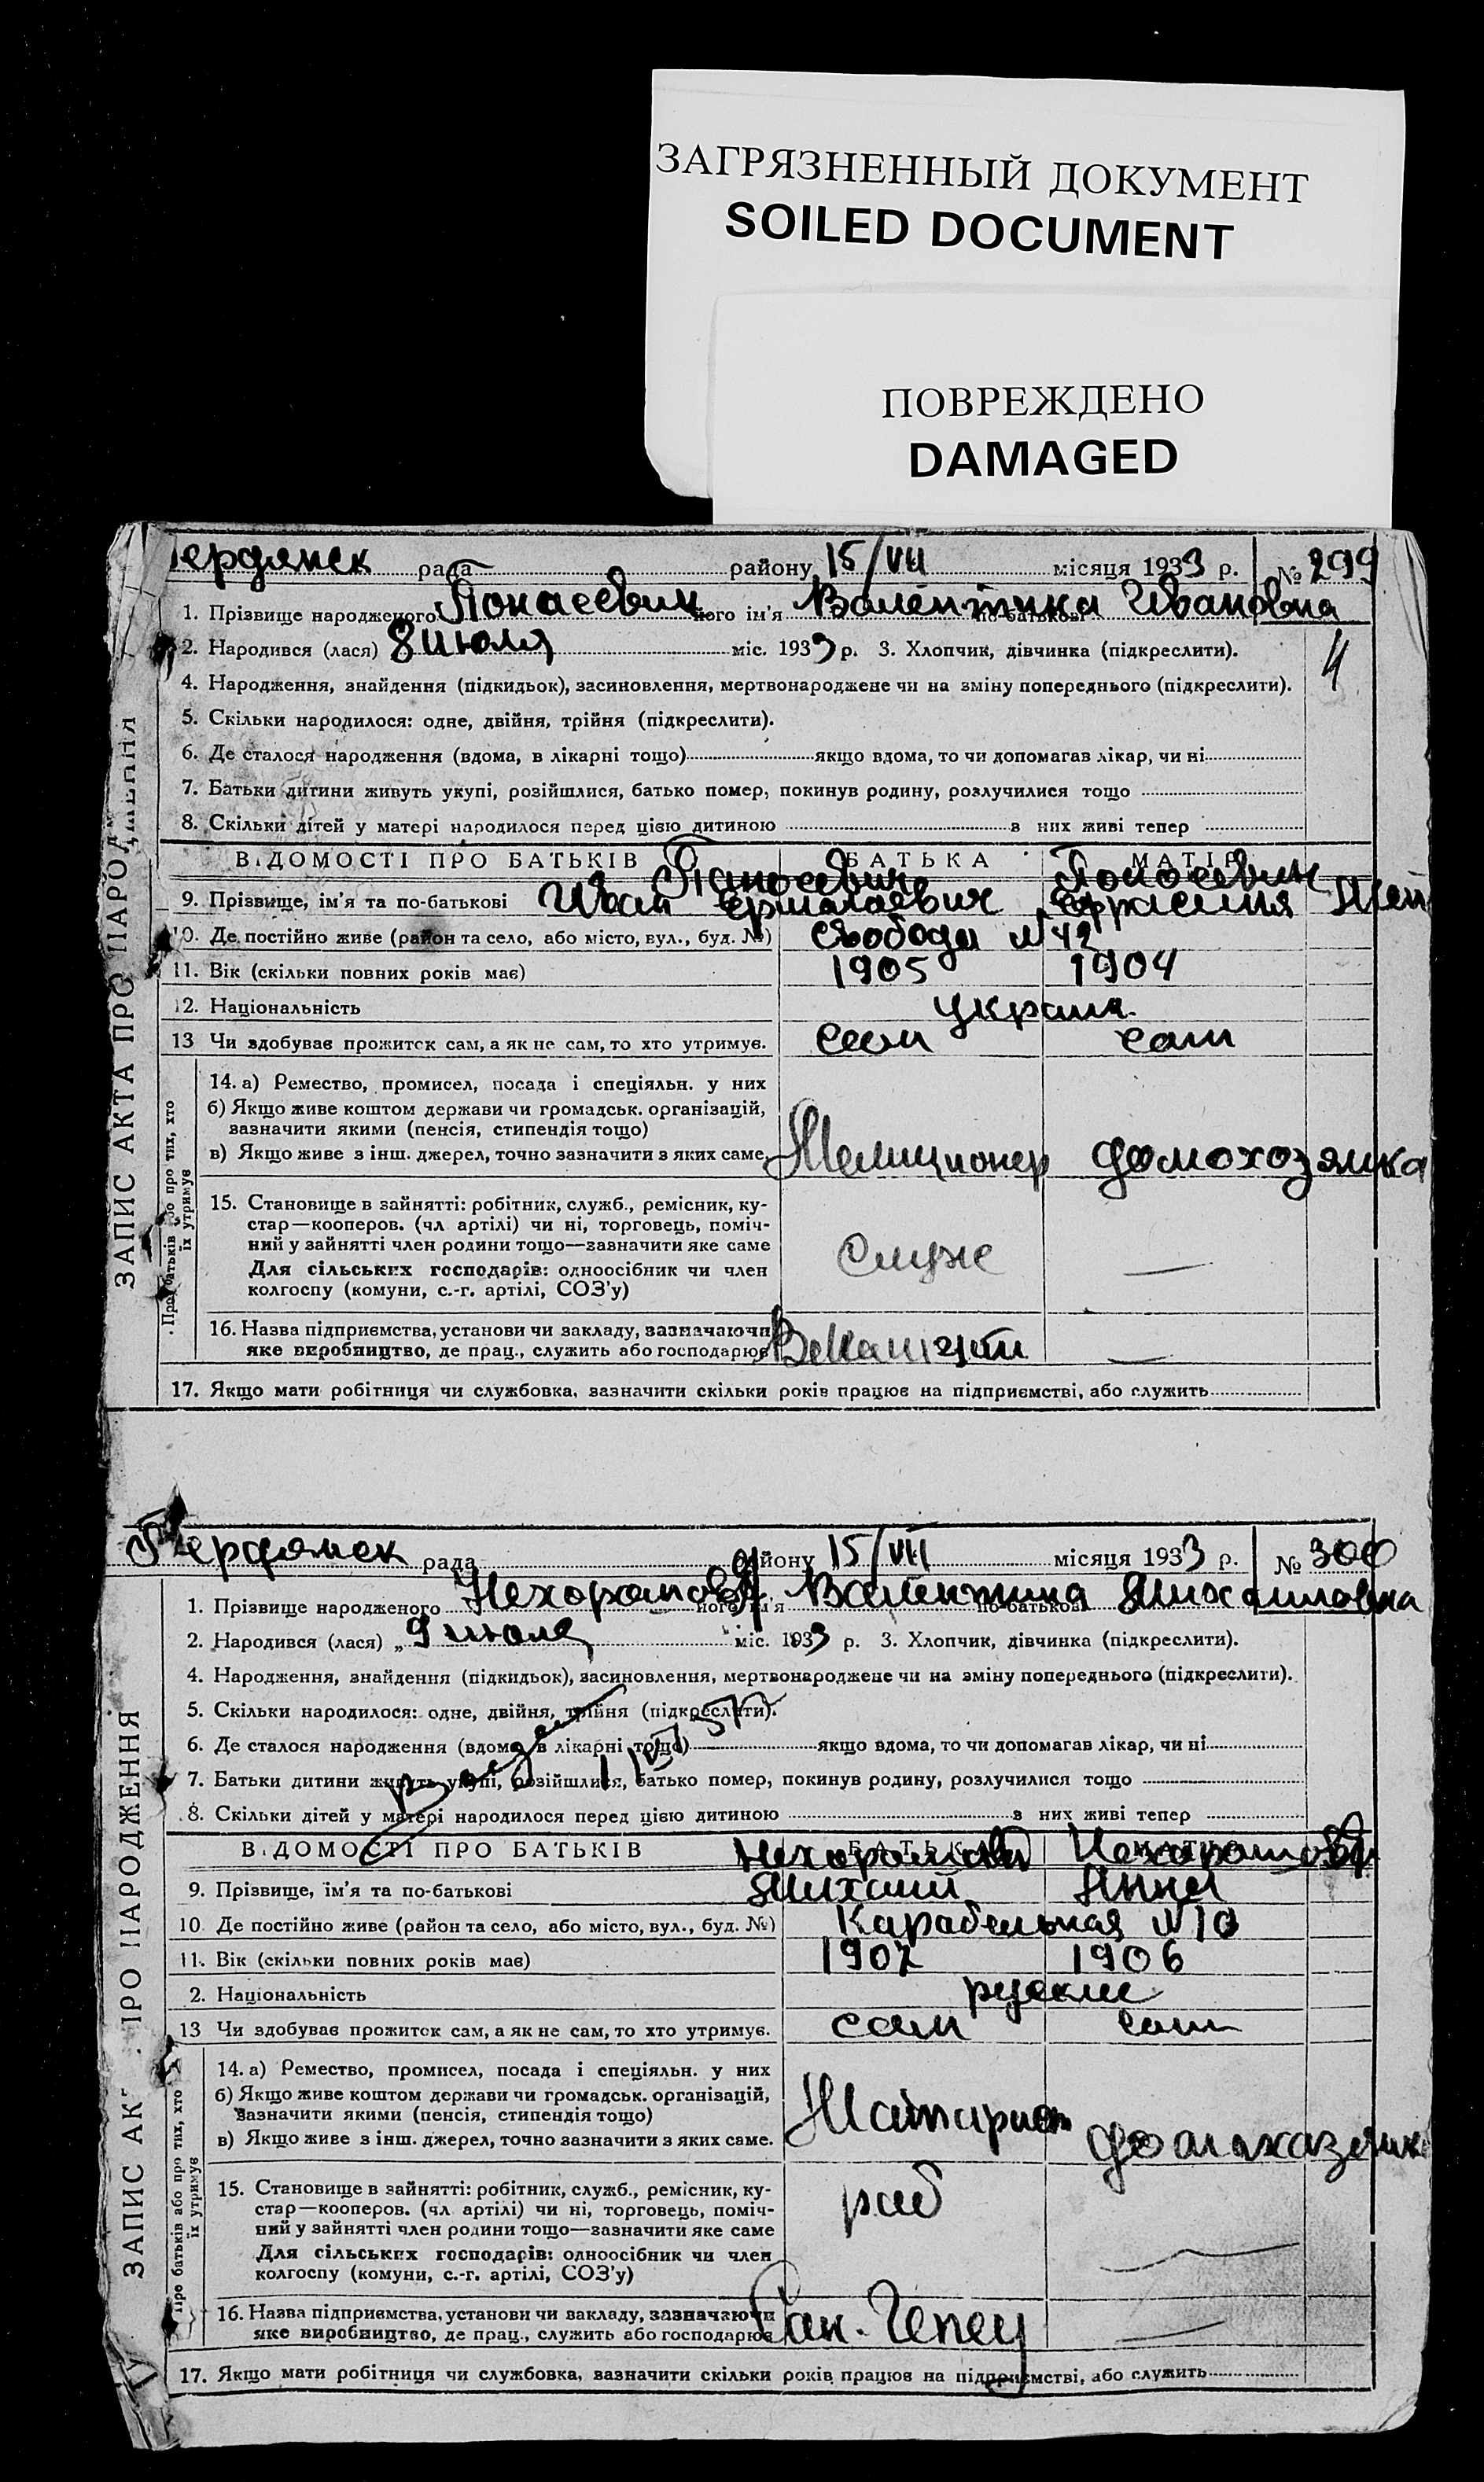 ЗАГРЯЗНЕННЫЙ ДОКУМЕНТ
SOILED DOCUMENT
ПОВРЕЖДЕНО
DAMAGED
ердянск рада району 15/VII місяця 1933 р. № 299
1. Прізвище народженого його ім'я Валентина по-батькові Ивановна
2. Народився (лася) 8 июля міс. 1933 р. 3. Хлопчик, дівчинка (підкреслити). 4
4. Народження, знайдення (підкидьок), засиновлення, мертвонароджене чи на зміну попереднього (підкреслити).
5. Скільки народилося: одне, двійня, трійня (підкреслити).
6. Де сталося народження (вдома, в лікарні тощо) якщо вдома, то чи допомагав лікар, чи ні
7. Батьки дитини живуть укупі, розійшлися, батько помер, покинув родину, розлучилися тощо
8. Скільки дітей у матері народилося перед цією дитиною з них живі тепер
ВІДОМОСТІ ПРО БАТЬКІВ БАТЬКА МАТІР
9. Прізвище, ім'я та по-батькові Иван Ермолаевич Ефросиния
10. Де постійно живе (район та село, або місто, вул., буд. №) Свободы № 42
11. Вік (скільки повних років має) 1905 1904
12. Національність украин.
13 Чи здобував прожиток сам, а як не сам, то хто утримує. сам сам
14. а) Ремество, промисел, посада і спеціяльн. у них
б) Якщо живе коштом держави чи громадськ. організацій,
зазначити якими (пенсія, стипендія тощо)
в) Якщо живе з інш. джерел, точно зазначити з яких саме. Милиционер домохозяйка
15. Становище в зайнятті: робітник, служб., ремісник, ку-
стар—кооперов. (чл артілі) чи ні, торговець, поміч-
ний у зайнятті член родини тощо—зазначити яке саме служ —
Для сільських господарів: одноосібник чи член
колгоспу (комуни, с.-г. артілі, СОЗ'у)
16. Назва підприємства, установи чи закладу, зазначаючи
яке виробництво, де прац., служить або господарює —
17. Якщо мати робітниця чи службовка, зазначити скільки років працює на підприємстві, або служить
ЗАПИС АКТА ПРО НАРОД
Про батьків або про тих, хто
їх утримує
Бердянск рада району 15/VII місяця 1933 р. № 300
1. Прізвище народженого Нехорошова його ім'я Валентина по-батькові Михайловна
2. Народився (лася) „ 9 июля міс. 1933 р. 3. Хлопчик, дівчинка (підкреслити).
4. Народження, знайдення (підкидьок), засиновлення, мертвонароджене чи на зміну попереднього (підкреслити).
5. Скільки народилося: одне, двійня, трійня (підкреслити).
6. Де сталося народження (вдома, в лікарні тощо) якщо вдома, то чи допомагав лікар, чи ні
7. Батьки дитини живуть укупі, розійшлися, батько помер, покинув родину, розлучилися тощо
8. Скільки дітей у матері народилося перед цією дитиною з них живі тепер
ВІДОМОСТІ ПРО БАТЬКІВ БАТЬКА Нехорошова
9. Прізвище, ім'я та по-батькові Михаил Анна
10. Де постійно живе (район та село, або місто, вул., буд. №) Карабельная № 10
11. Вік (скільки повних років має) 1907 1906
2. Національність русские
13 Чи здобував прожиток сам, а як не сам, то хто утримує. сам сам
14. а) Ремество, промисел, посада і спеціяльн. у них
б) Якщо живе коштом держави чи громадськ. організацій,
зазначити якими (пенсія, стипендія тощо)
в) Якщо живе з інш. джерел, точно зазначити з яких саме.
15. Становище в зайнятті: робітник, служб., ремісник, ку-
стар—кооперов. (чл артілі) чи ні, торговець, поміч-
ний у зайнятті член родини тощо—зазначити яке саме раб —
Для сільських господарів: одноосібник чи член
колгоспу (комуни, с.-г. артілі, СОЗ'у)
16. Назва підприємства, установи чи закладу, зазначаючи
яке виробництво, де прац., служить або господарює —
17. Якщо мати робітниця чи службовка, зазначити скільки років працює на підприємстві, або служить
ЗАПИС АКТ ПРО НАРОДЖЕННЯ
Про батьків або про тих, хто
їх утримує